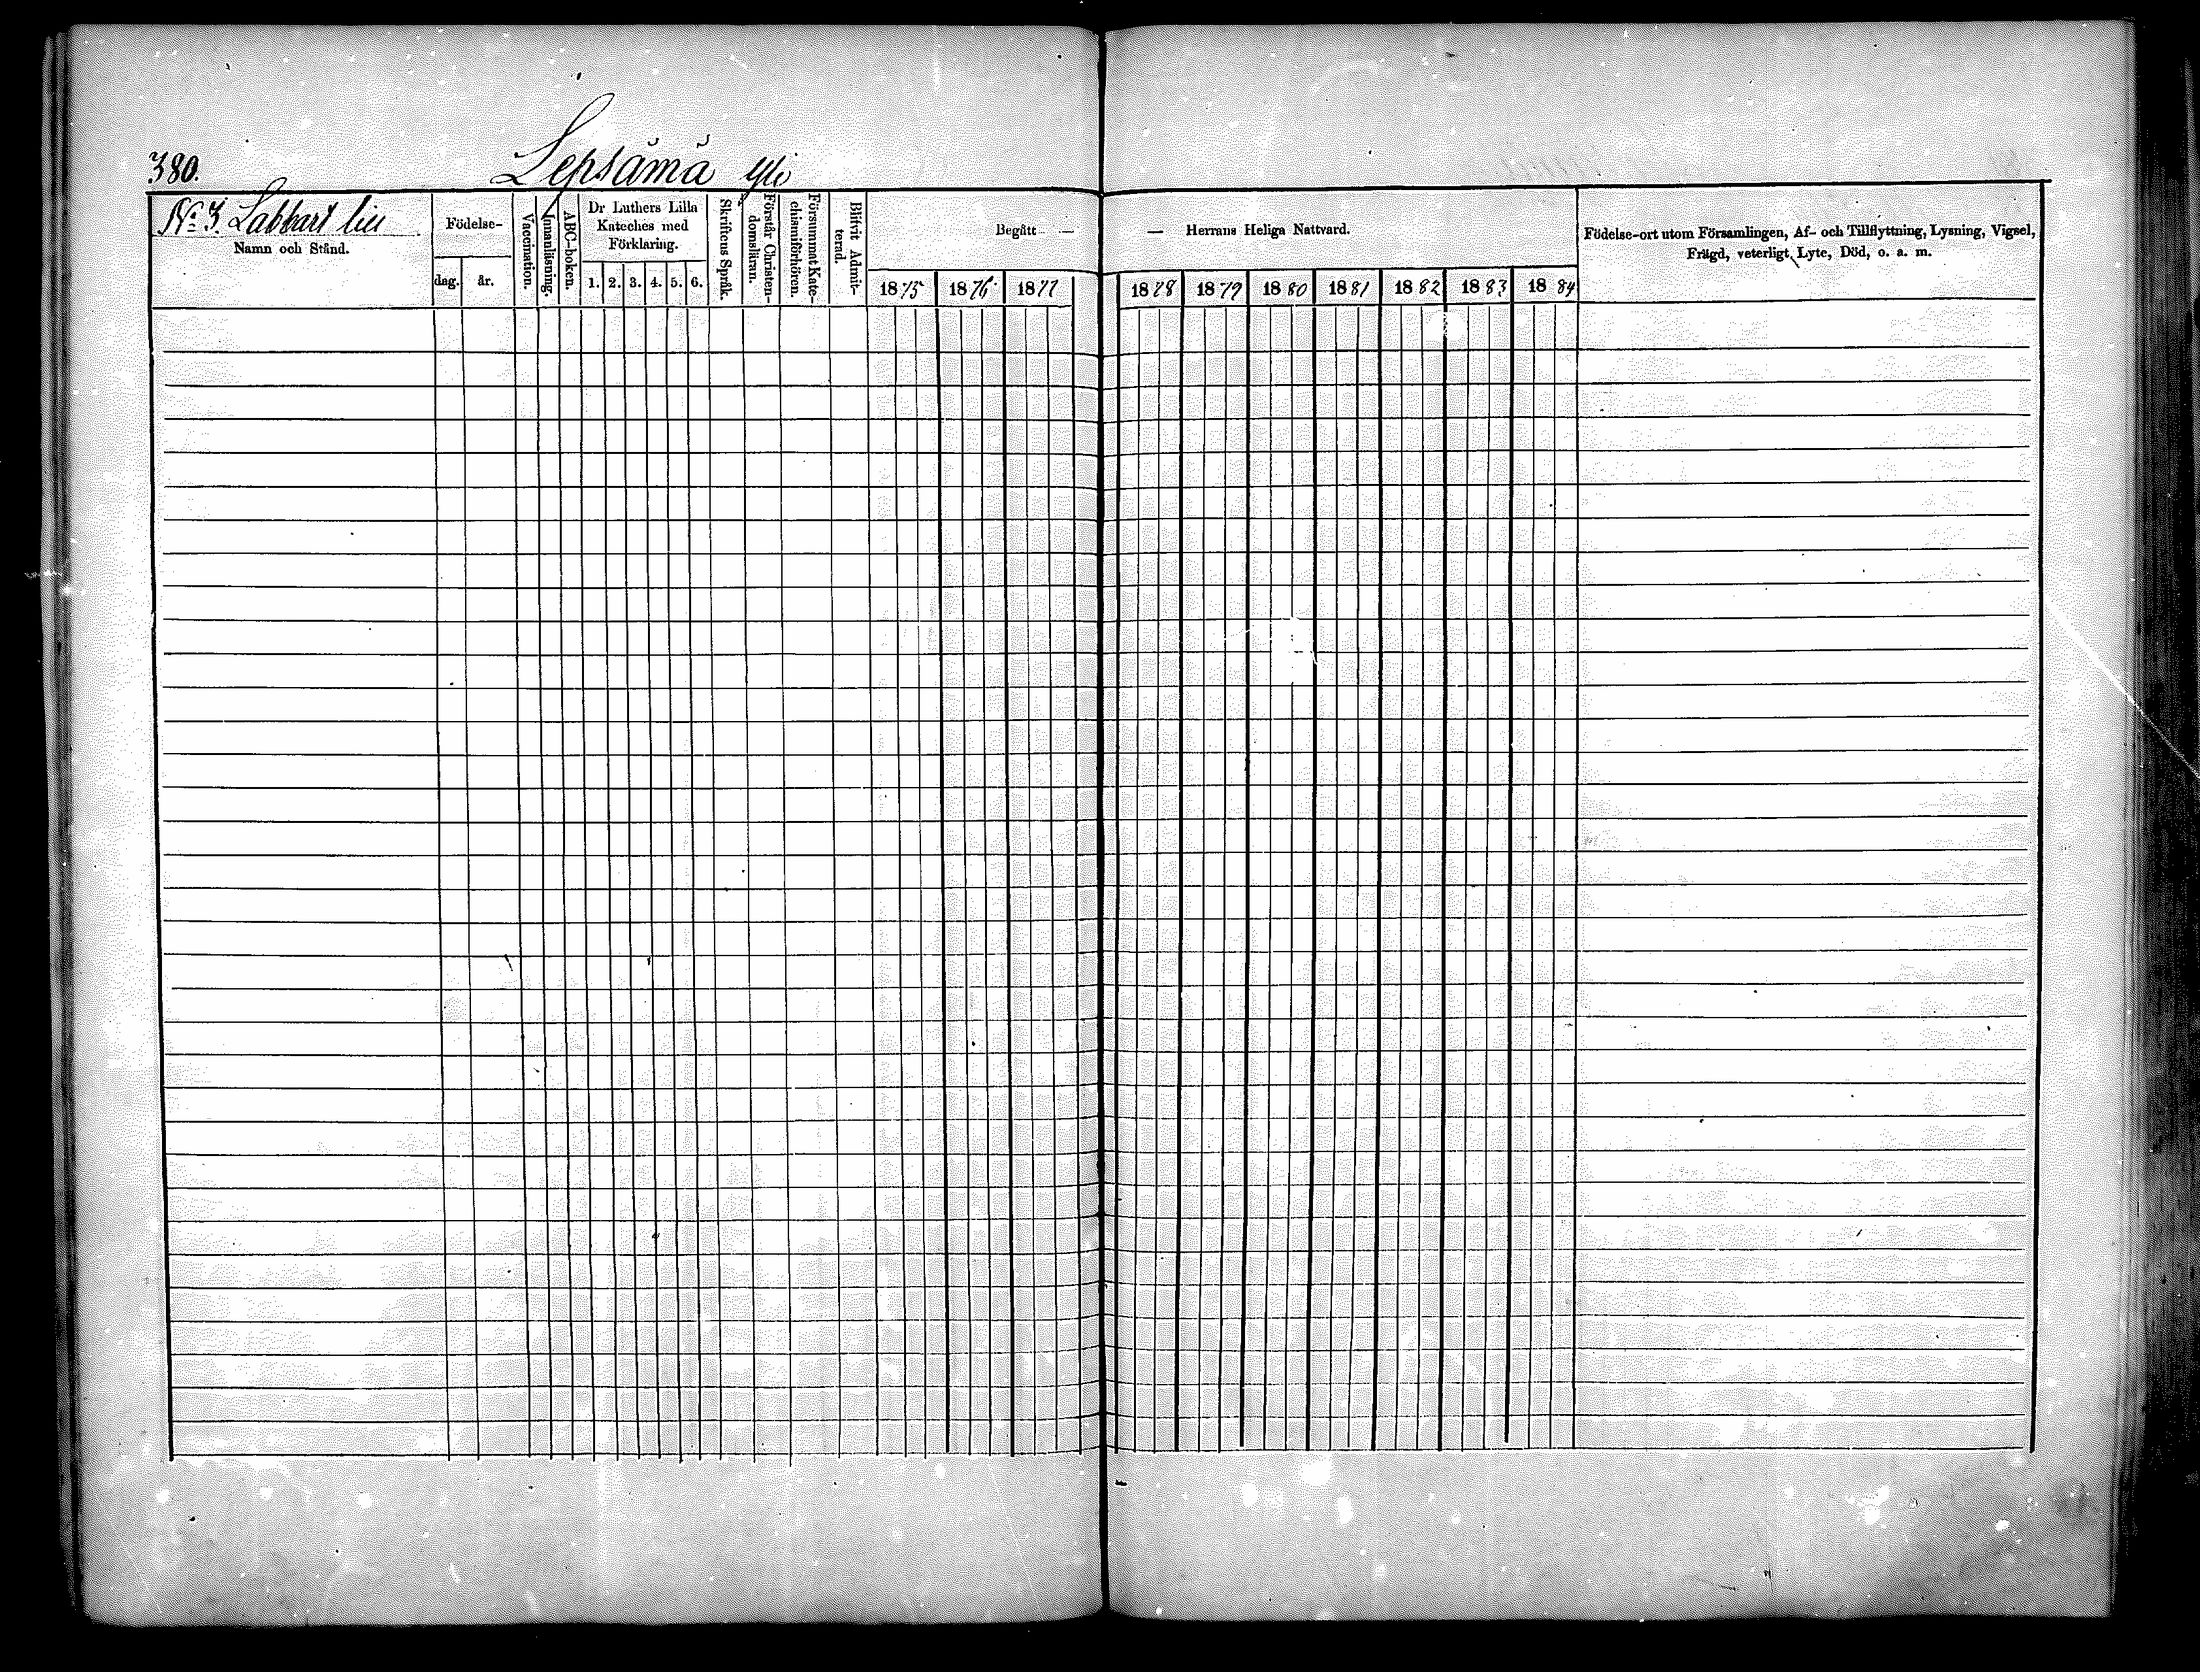 380.
Lepsämä
No 3. Labbart
Namn och Stånd.
Födelse-
dag.
år.
Vaccination.
Innanläsning.
ABC-boken.
Dr Luthers Lilla
Kateches med
Förklaring.
1. 2. 3. 4. 5. 6.
Skriftens Språk.
Förstår Christen-
domsläran.
Försummat Kate-
chismiförhören.
Blifvit Admit-
terad.
Begått —
1875 1876 1877
— Herrans Heliga Nattvard.
1878 1879 1880 1881 1882 1883 1884
Födelse-ort utom Församlingen, Af- och Tillflyttning, Lysning, Vigsel,
Frägd, veterligt Lyte, Död, o. a. m.